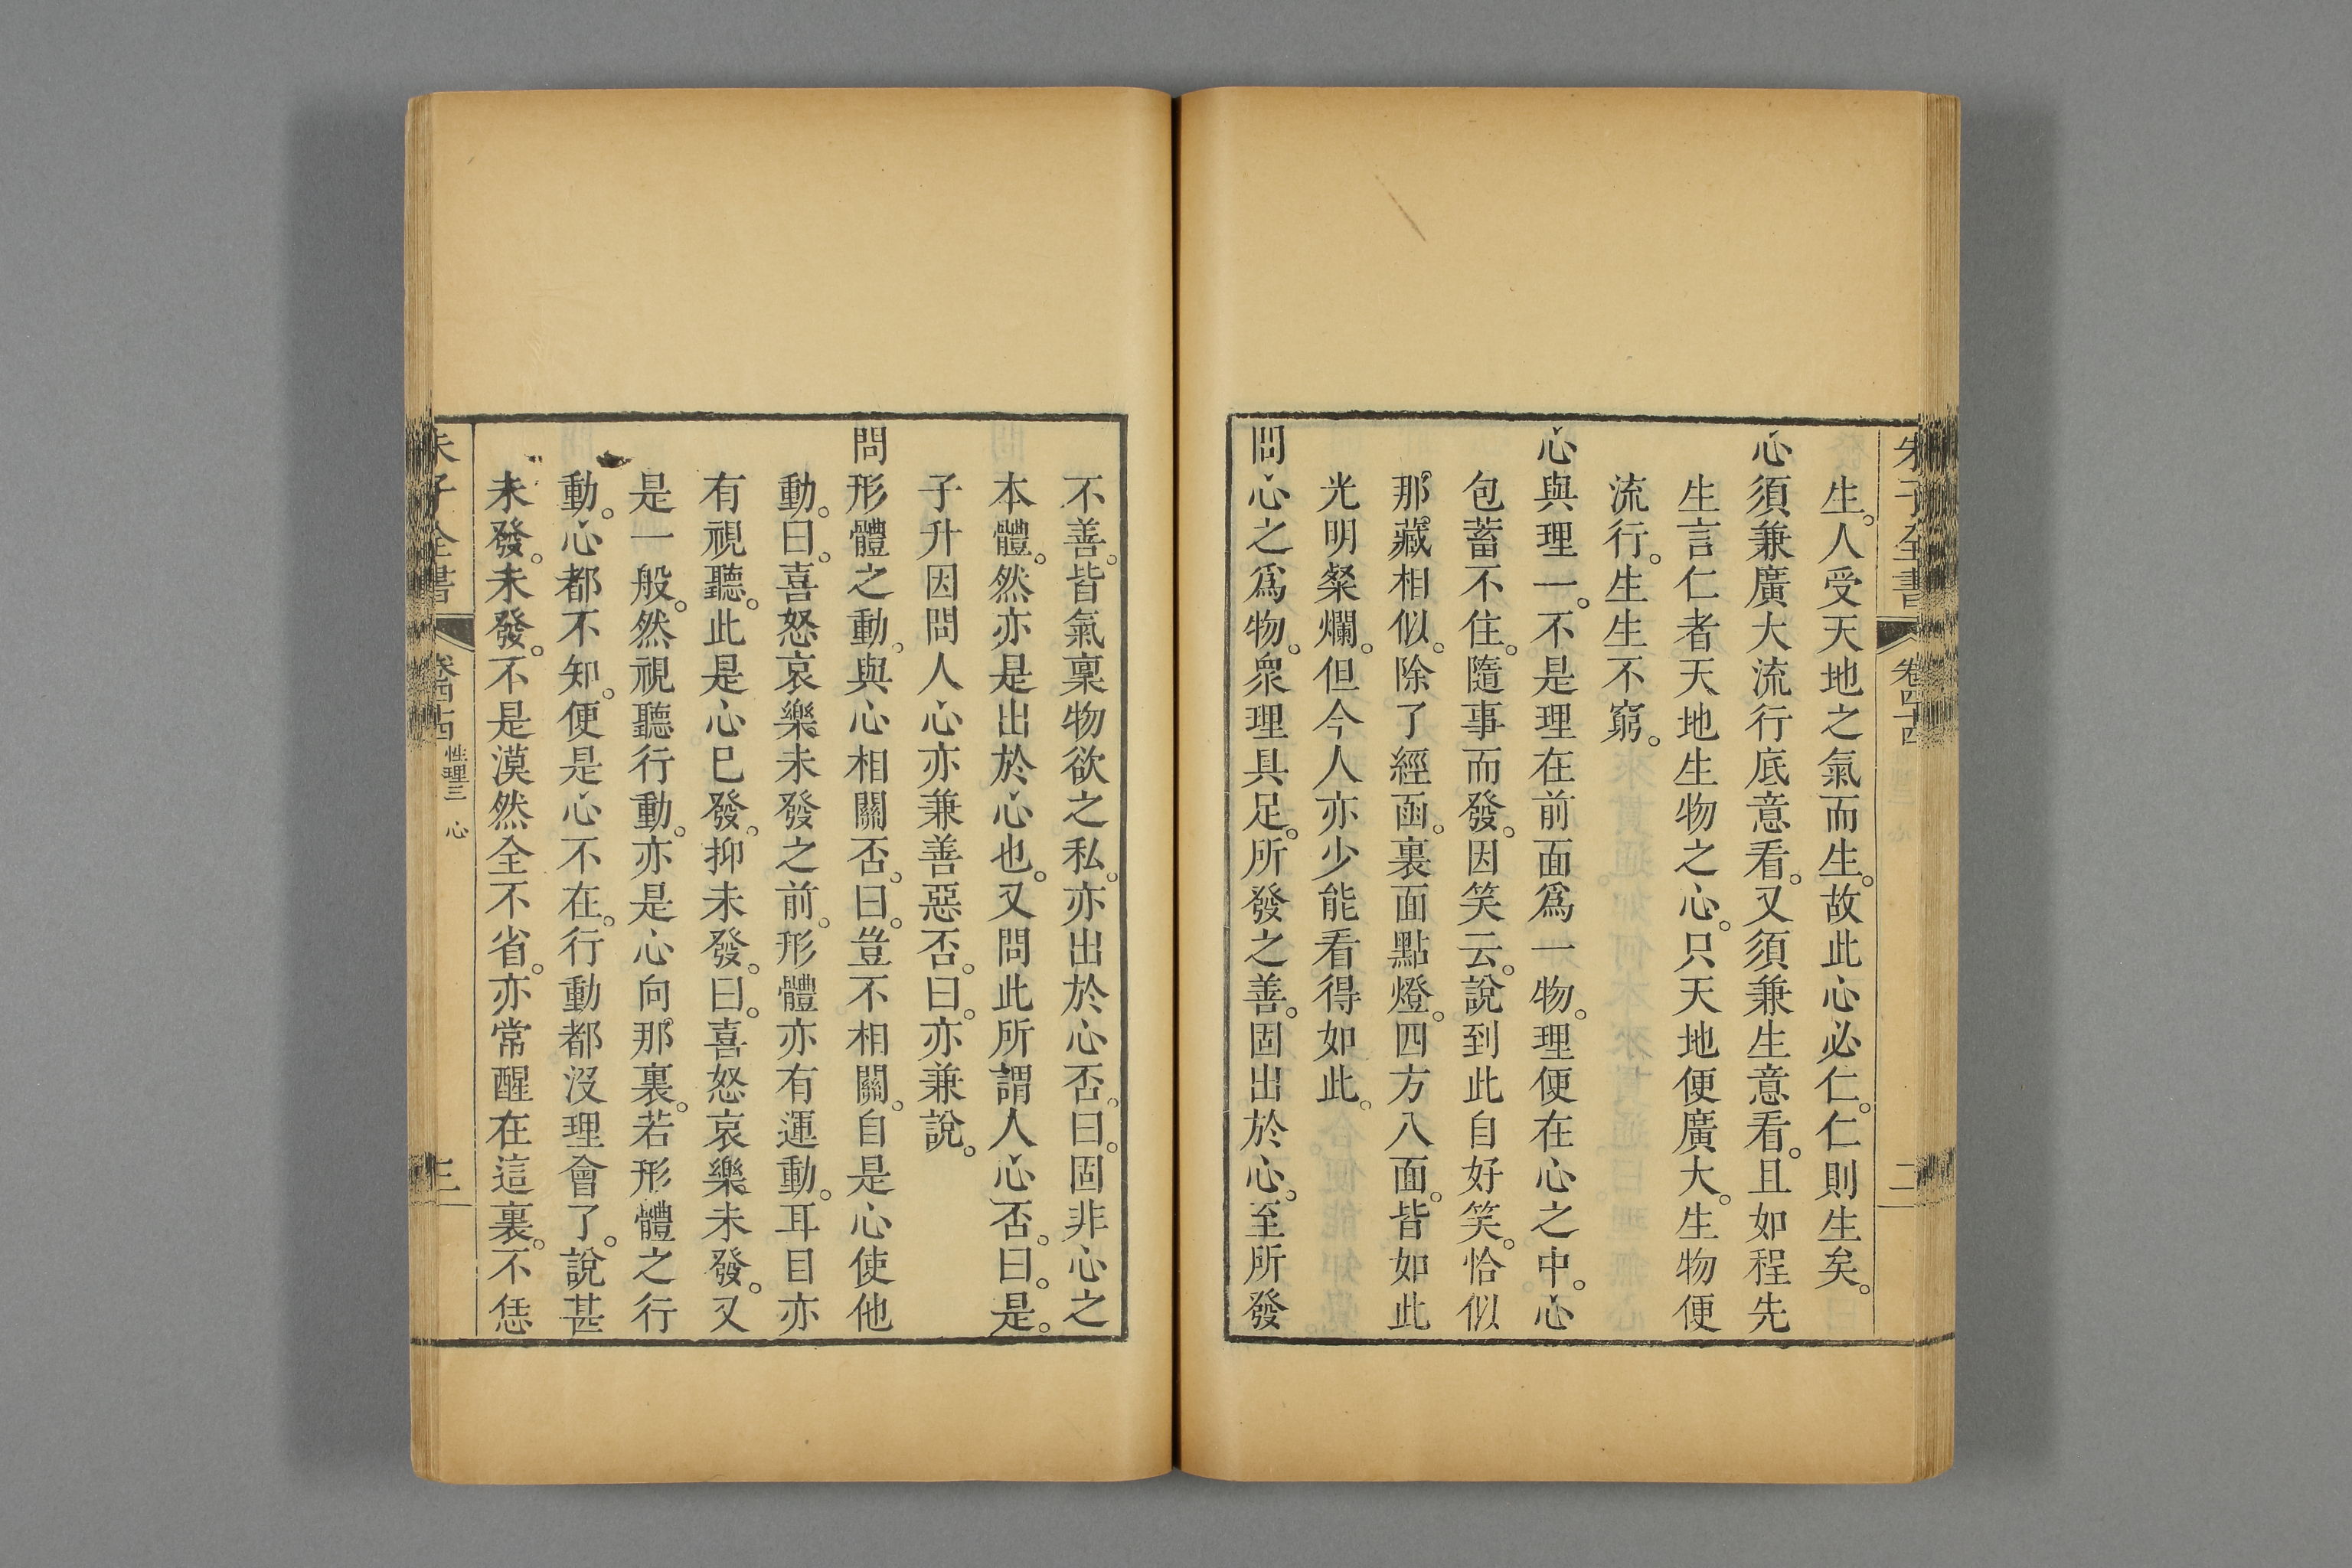 朱子全書 卷四十四 二
生。人受天地之氣而生。故此心必仁。仁則生矣。
心須兼廣大流行底意看。又須兼生意看。且如程先
生言仁者天地生物之心。只天地便廣大。生物便
流行。生生不窮。
心與理一。不是理在前面爲一物。理便在心之中。心
包蓄不住。隨事而發。因笑云。說到此自好笑。恰似
那藏相似。除了經函。裏面點燈。四方八面。皆如此
光明粲爛。但今人亦少能看得如此。
問心之爲物。衆理具足。所發之善。固出於心。至所發
不善。皆氣稟物欲之私。亦出於心否。曰。固非心之
本體。然亦是出於心也。又問此所謂人心否。曰。是。
子升因問人心亦兼善惡否。曰。亦兼說。
問形體之動。與心相關否。曰。豈不相關。自是心使他
動。曰。喜怒哀樂未發之前。形體亦有運動。耳目亦
有視聽。此是心已發。抑未發。曰。喜怒哀樂未發。又
是一般。然視聽行動。亦是心向那裏。若形體之行
動。心都不知。便是心不在。行動都沒理會了。說甚
未發。未發。不是漠然全不省。亦常醒在這裏。不恁
朱子全書 卷四十四 性理三 心 三